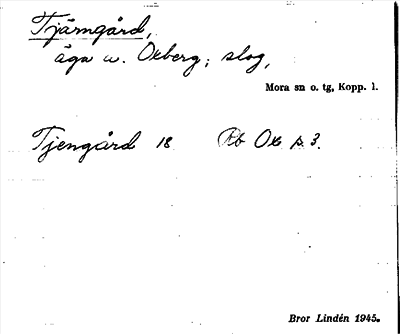 Tjärngård,
äga w. Oxberg; slog,
Mora sn o. tg, Kopp. l.
Tjengård 18 Rb Ox s. 3.
Bror Lindén 1945.